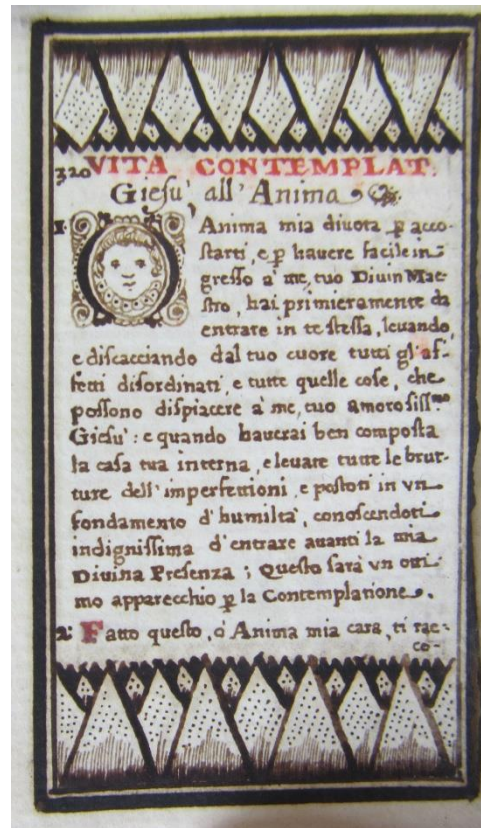 320 VITA CONTEMPLAT.
Giesu', all' Anima
1. O Anima mia divota ꝑ acco-
starti, e ꝑ havere facile in
gresso a' me, tuo Divin Mae
stro, hai primieramente da
entrare in te stessa, levando,
e discacciando dal tuo cuore tutti gl'af-
fetti disordinati, e tutte quelle cose, che
possono dispiacere a' me, tuo amorosiss.mo
Giesu': e quando haverai ben composta
la casa tua interna, e levate tutte le brut-
ture dell' imperfettioni, e postoti in vn
fondamento d' humilta', conoscendoti
indignissima d'entrare auanti la mia
Divina Presenza; Questo sarà vn otti
mo apparecchio ꝑ la Contemplatione.
2. Fatto questo, ò Anima mia cara, ti rac-
co-